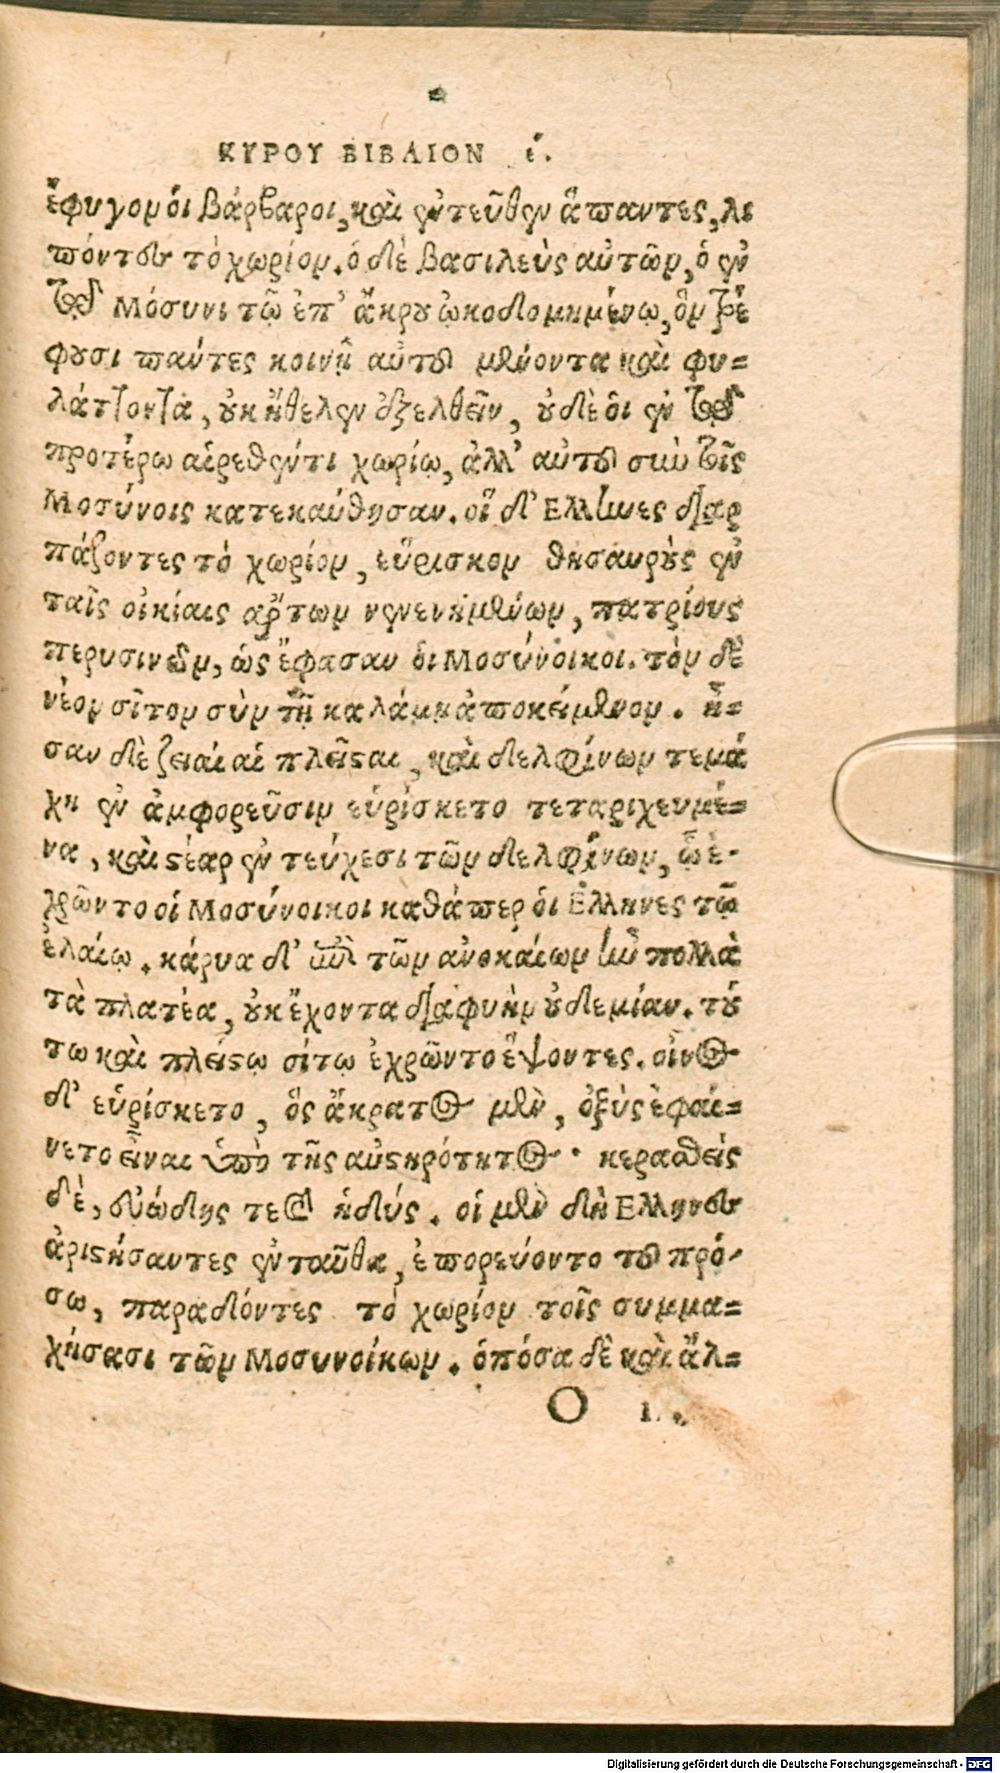 ΚΥΡΟΥ ΒΙΒΛΙΟΝ έ.
ἔφυγον ὁι βάρβαροι, καὶ ἐντεῦθεν ἅπαντες, λι
πόντες τὸ χωρίον. ὁ δὲ βασιλεὺς αὐτῶν, ὁ ἐν
τῷ Μόσυνι τῷ ἐπ' ἄκρου ᾠκοδομημένῳ, ὃν τρέ
φουσι πάντες κοινῇ αὐτοῦ μένοντα καὶ φυ=
λάττοντα, οὐκ ἤθελεν ἐξελθεῖν, οὐδὲ ὁι ἐν τῷ
προτέρῳ αἱρεθέντι χωρίῳ, ἀλλ' αὐτοῦ σὺν τοῖς
Μοσύνοις κατεκαύθησαν. οἵ δ' Ελληνες διαρ
πάζοντες τὸ χωρίον, εὕρισκον θησαυροὺς ἐν
ταῖς οἰκίαις ἄρτων νενενημένων, πατρίους
περυσινῶν, ὡς ἔφασαν ὁι Μοσύνοικοι. τὸν δὲ
νέον σῖτον σὺν τῇ καλάμῃ ἀποκείμενον. ἦ=
σαν δὲ ζειαί αἱ πλεῖσαι, καὶ δελφίνων τεμά
χη ἐν ἀμφορεῦσιν εὑρίσκετο τεταριχευμέ=
να, καὶ στέαρ ἐν τεύχεσι τῶν δελφίνων, ᾧ ἐ-
χρῶντο οἱ Μοσύνοικοι καθάπερ ὁι Ἑλληνες τῷ
ἐλαίῳ. κάρυα δ' ἐπὶ τῶν ἀνοκαίων ἦν πολλὰ
τὰ πλατέα, οὐκ ἔχοντα διαφυὴν οὐδεμίαν. τού
τῳ καὶ πλείστῳ σίτῳ ἐχρῶντο ἕψοντες. οἶνος
δ' εὑρίσκετο, ὃς ἄκρατος μὲν, ὀξὺς ἐφαί=
νετο εἶναι ὑπὸ τῆς αὐστηρότητος· κερασθεὶς
δὲ, εὐώδης τε καὶ ἡδύς. οἱ μὲν δὴ Ελληνες
ἀριστήσαντες ἐνταῦθα, ἐπορεύοντο τοῦ πρό-
σω, παραδόντες τὸ χωρίον τοῖς συμμα=
χήσασι τῶν Μοσυνοίκων. ὁπόσα δὲ καὶ ἄλ=
O 1.
Digitalisierung gefördert durch die Deutsche Forschungsgemeinschaft - DFG